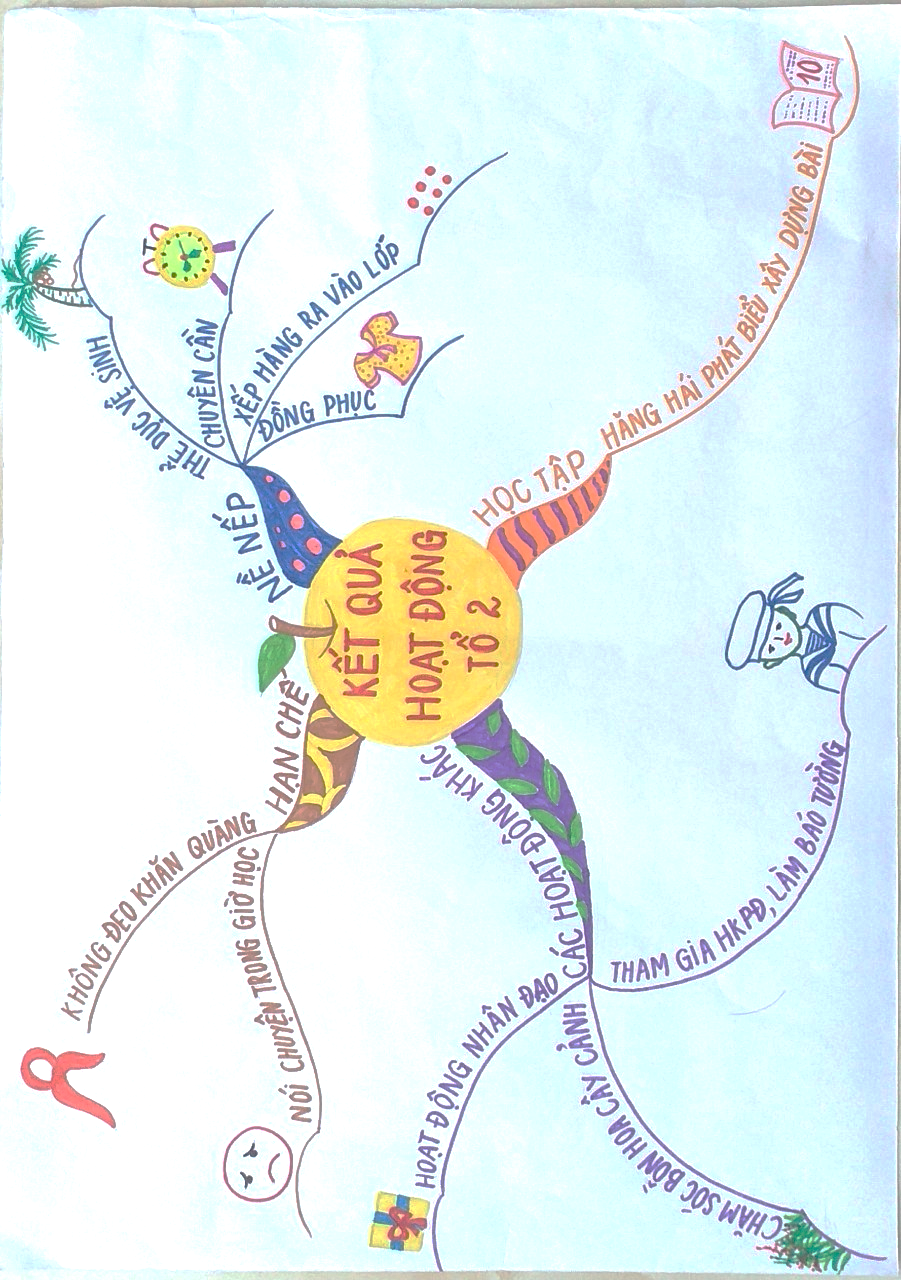 KẾT QUẢ
HOẠT ĐỘNG
TỔ 2
NỀ NẾP
THỂ DỤC VỆ SINH
CHUYÊN CẦN
XẾP HÀNG RA VÀO LỚP
ĐỒNG PHỤC
HỌC TẬP
HĂNG HÁI PHÁT BIỂU XÂY DỰNG BÀI
10
CÁC HOẠT ĐỘNG KHÁC
THAM GIA HKPĐ, LÀM BÁO TƯỜNG
CHĂM SÓC BỒN HOA CÂY CẢNH
HOẠT ĐỘNG NHÂN ĐẠO
HẠN CHẾ
NÓI CHUYỆN TRONG GIỜ HỌC
KHÔNG ĐEO KHĂN QUÀNG